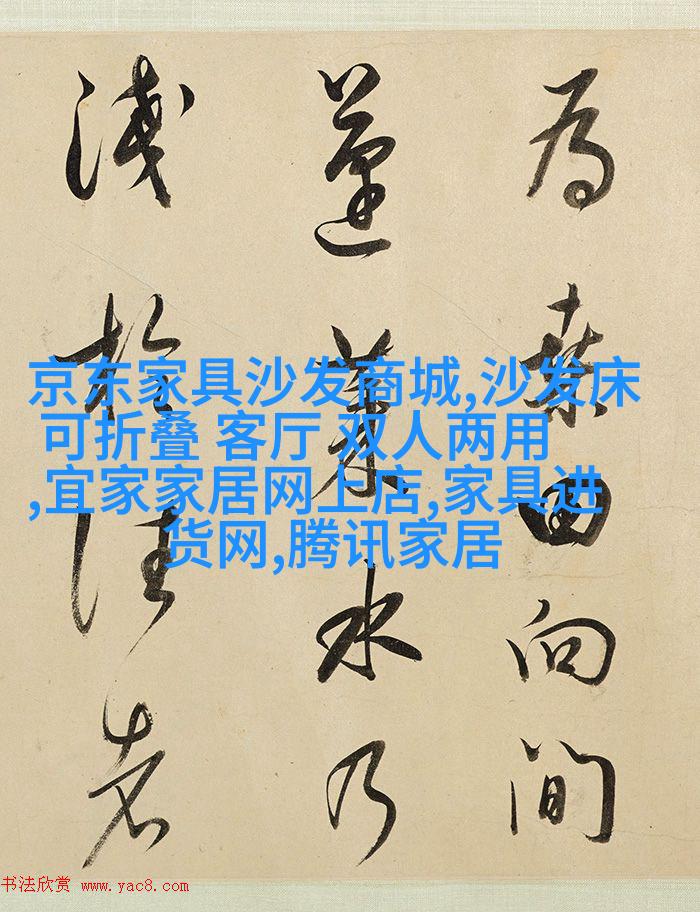 為桑田向間
蓬萊水乃
淺於往者
京东家具沙发商城,沙发床
可折叠 客厅 双人两用
,宜家家居网上店,家具进
货网,腾讯家居
书法欣赏 www.yac8.com